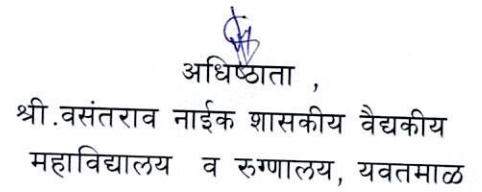 अधिष्ठाता ,
श्री .वसंतराव नाईक शासकीय वैद्यकीय
महाविद्यालय व रुग्णालय, यवतमाळ